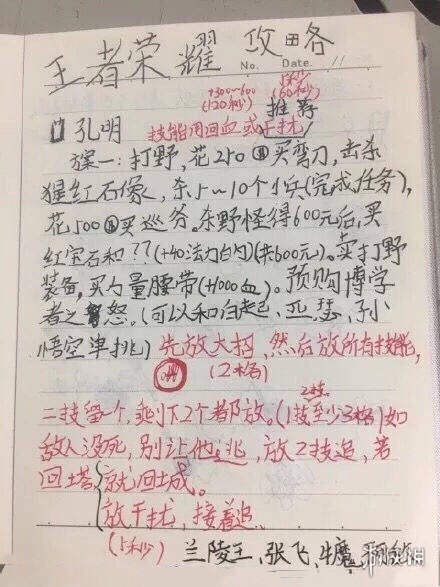 王者荣耀 攻略
No. Date. 11
+300~600 5秒
(120秒) (60秒)
推荐
孔明 技能用回血或干扰
方案一:打野,花250买弯刀,击杀
猩红石像,杀5~10个小兵(完成任务),
花500买巡务。杀野怪得600元后,买
红宝石和??(+40法力白内)(共600元)。卖打野
装备,买力量腰带(+1000血)。预购博学
者之怒。(可以和白起、亚瑟、孙
悟空单挑)先放大招,然后放所有技能,
(2格)
2技
二技留一个,剩下2个都放。(1技至少3格)如
敌人没死,别让他逃,放2技追,若
回塔 就回城。
放干扰,接着追
(5秒) 兰陵王、张飞、牛魔、